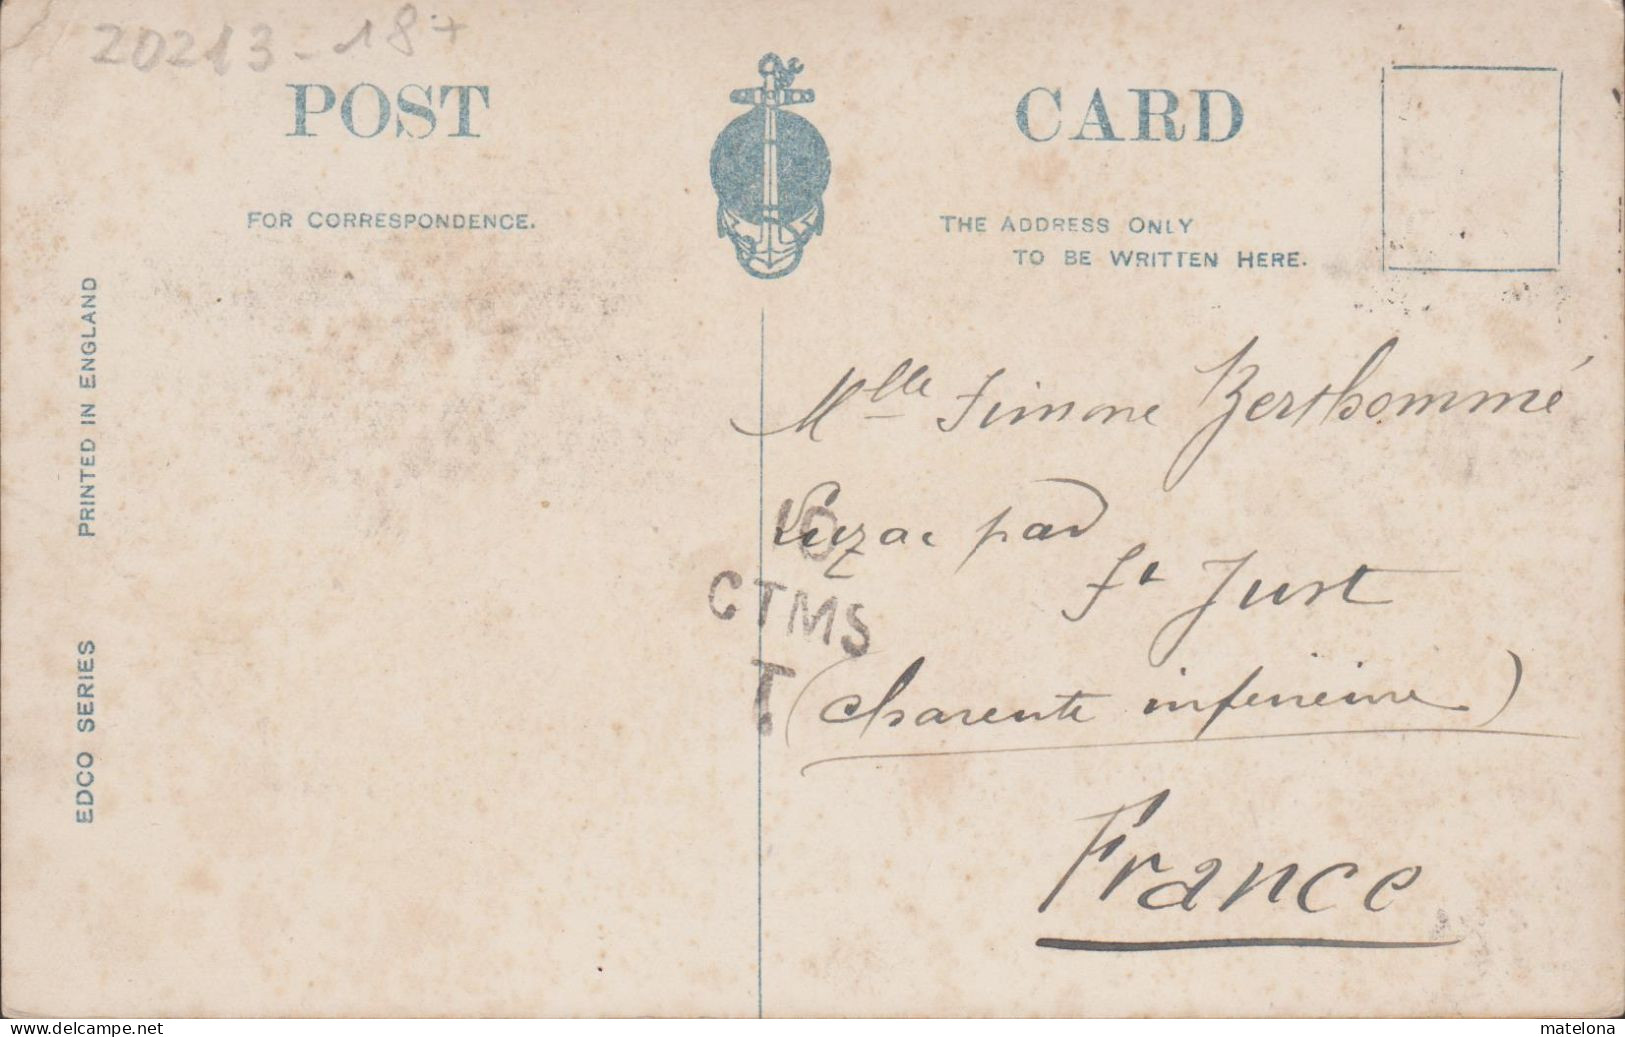 20213-18+
POST CARD
FOR CORRESPONDENCE.
THE ADDRESS ONLY
TO BE WRITTEN HERE.
PRINTED IN ENGLAND
EDCO SERIES
Mlle Simone Berthommé
Luzac par
St Just
(Charente inférieure)
France
10
CTMS
T
www.delcampe.net
matelona